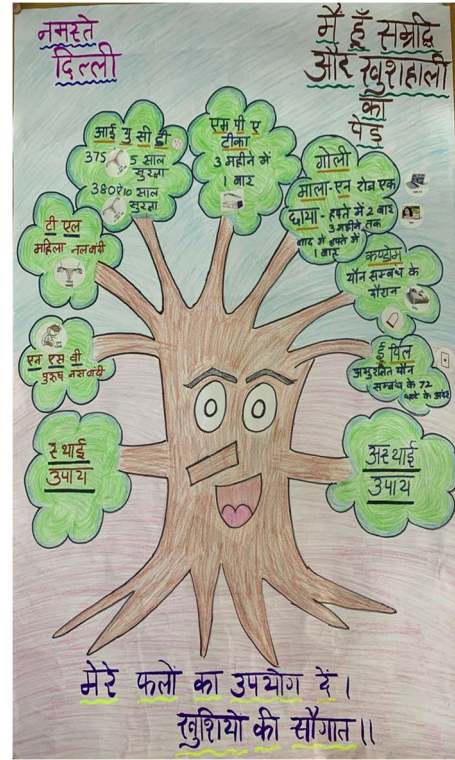 नमस्ते
दिल्ली
मैं हूँ सम्रद्धि
और खुशहाली
का
पेड़
आई यु सी डी
375 5 साल
सुरक्षा
380 10 साल
सुरक्षा
एम पी ए
टीका
3 महीने में
1 बार
गोली
माला-एन रोज एक
छाया- हफ्ते में 2 बार
3 महीने तक
बाद में हफ्ते में
1 बार
टी एल
महिला नसबंदी
कण्डोम
यौन सम्बंध के
दौरान
एन एस वी
पुरुष नसबंदी
ई पिल
असुरक्षित यौन
सम्बंध के 72
घण्टे के अंदर
स्थाई
उपाय
अस्थाई
उपाय
मेरे फलों का उपयोग दें।
खुशियों की सौगात॥